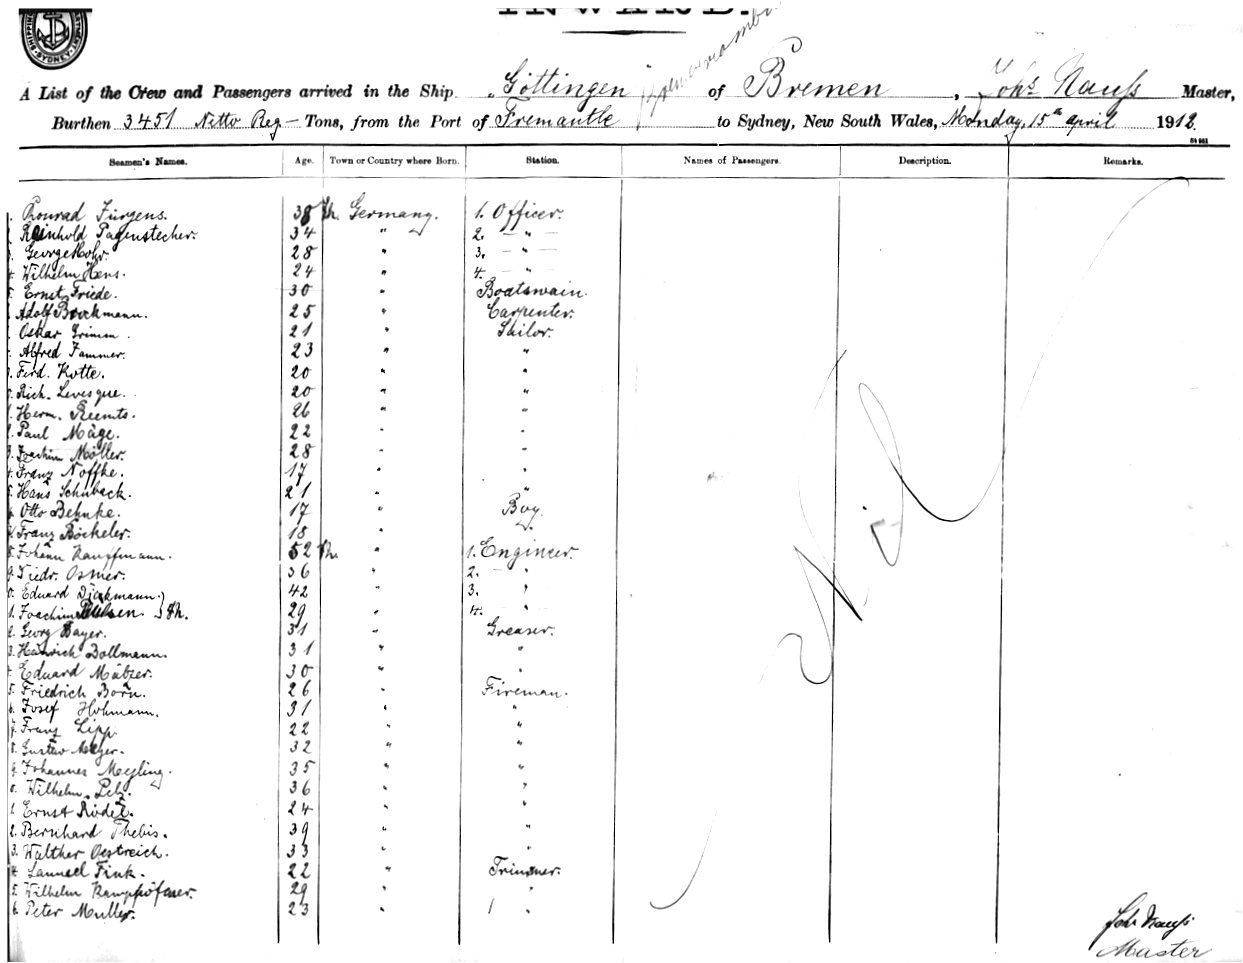 INWARD.
SHIPPING SYDNEY
A List of the Crew and Passengers arrived in the Ship "Göttingen" of Bremen, Johs Nauss Master,
Burthen 3451 Netto Reg - Tons, from the Port of Fremantle to Sydney, New South Wales, Monday, 15th April 1912.
Seamen's Names. Age. Town or Country where Born. Station. Names of Passengers. Description. Remarks.
Konrad Jürgens. 38 Germany. 1. Officer.
Reinhold Pagenstecher. 34 " 2. - " -
George Mohr. 28 " 3. - " -
4. Wilhelm Hens. 24 " 4. - " -
5. Ernst Friede. 30 " Boatswain.
Adolf Brockmann. 25 " Carpenter.
Oskar Grimm. 21 " Sailor.
Alfred Jammer. 23 " "
Ferd. Kotte. 20 " "
Rich. Levesque. 20 " "
1. Herm. Reemts. 26 " "
2. Paul Mäge. 22 " "
3. Joachim Möller. 28 " "
4. Franz Noffke. 17 " "
5. Hans Schuback. 21 " "
6. Otto Behnke. 17 " Boy.
7. Franz Böckeler. 18 " "
8. Johann Kampfmann. 52 " 1. Engineer.
9. Diedr. Osmer. 36 " 2. "
0. Eduard Dieckmann. 42 " 3. "
1. Joachim 29 " 4. "
2. Georg Bayer. 31 " Greaser.
3. Heinrich Bollmann. 31 " "
4. Eduard Mäbzer. 30 " "
5. Friedrich Born. 26 " Fireman.
6. Josef Hohmann. 31 " "
7. Franz Lipp. 22 " "
8. Gustav Meyer. 32 " "
9. Johannes Meyling. 35 " "
0. Wilhelm Pelz. 36 " "
1. Ernst Rödel. 24 " "
2. Bernhard Thebis. 39 " "
3. Walther Oestreich. 33 " "
4. Samuel Fink. 22 " Trimmer.
5. Wilhelm 29 " "
6. Peter Muller. 23 " "
Nil
Joh Nauss
Master